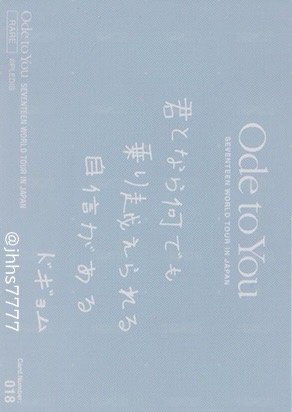 Ode to You
SEVENTEEN WORLD TOUR IN JAPAN
君となら何でも
乗り越えられる
自信がある
ドギョム
Ode to You SEVENTEEN WORLD TOUR IN JAPAN
RARE ©PLEDIS
Card Number:
018
@jhhs77777